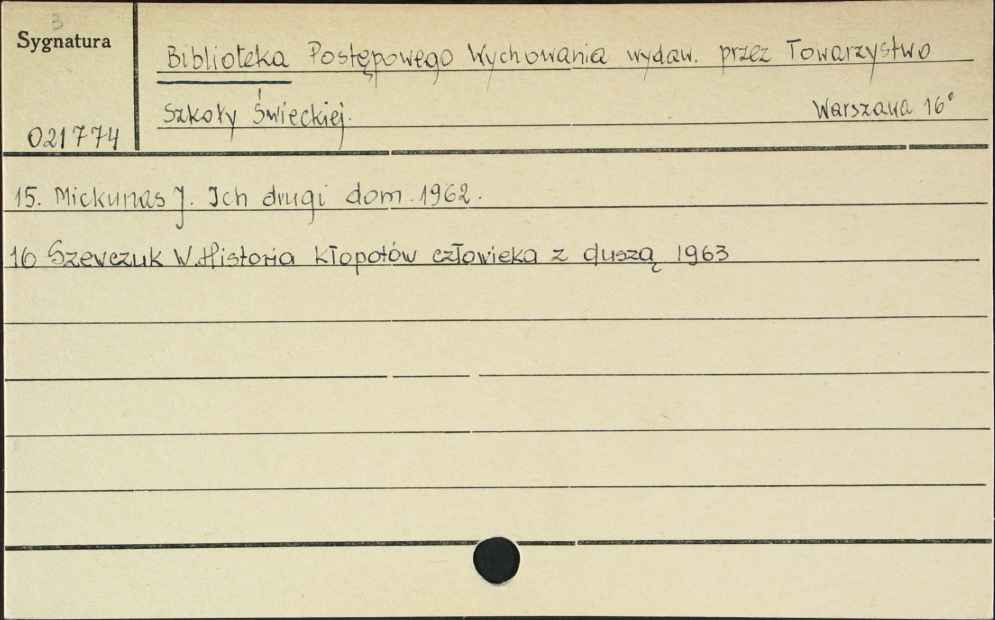 3
Sygnatura
Biblioteka Postępowego Wychowania wydaw. przez Towarzystwo
Szkoły Świeckiej.
Warszawa 16°
021774
15. Mickunas J. Ich drugi dom. 1962.
16 Szewczuk W. Historia kłopotów człowieka z duszą 1963